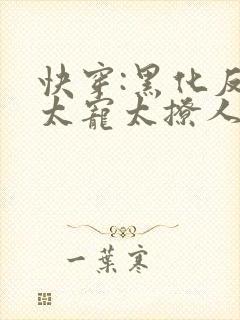 快穿:黑化反
太寵太撩人
一葉寒